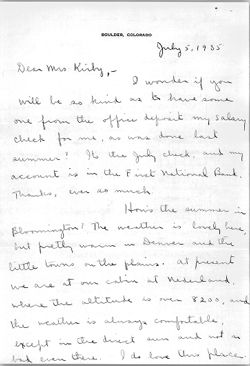 BOULDER, COLORADO
July 5, 1935
Dear Mrs. Kirby,-
I wonder if you
will be so kind as to have some
one from the office deposit my salary
check for me, as was done last
summer? It's the July check, and my
account is in the First National Bank.
Thanks, ever so much.
How's the summer in
Bloomington? The weather is lovely here,
but pretty warm in Denver and the
little towns on the plains. At present
we are at our cabin at Nederland,
where the altitude is over 8200, and
the weather is always comfortable,
except in the direct sun and not so
bad even there. I do love this place,